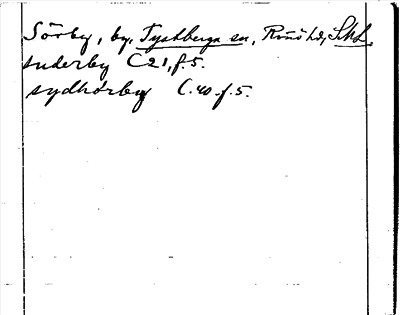 Sörby, by, Tystberga sn, Rönö hd, Sthl.
suderby C 21, f. 5.
sydhòrby C. 40. f. 5.